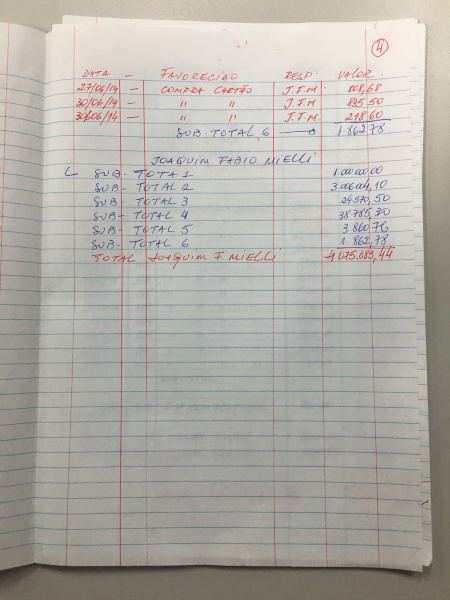 4
DATA - FAVORECIDO RESP VALOR
27/06/14 - COMPRA CARTÃO J.F.M. 808,68
30/06/14 - " " J.F.M. 835,50
30/06/14 - " " J.F.M. 218,60
SUB-TOTAL 6 1.862,78
JOAQUIM FABIO MIELLI
SUB-TOTA 1 1.000.000,00
SUB-TOTAL 2 3.006.004,10
SUB-TOTAL 3 24.570,50
SUB-TOTAL 4 38.785,30
SUB-TOTAL 5 3.860,76
SUB-TOTAL 6 1.862,78
TOTAL JOAQUIM F. MIELLI 4.075.083,44